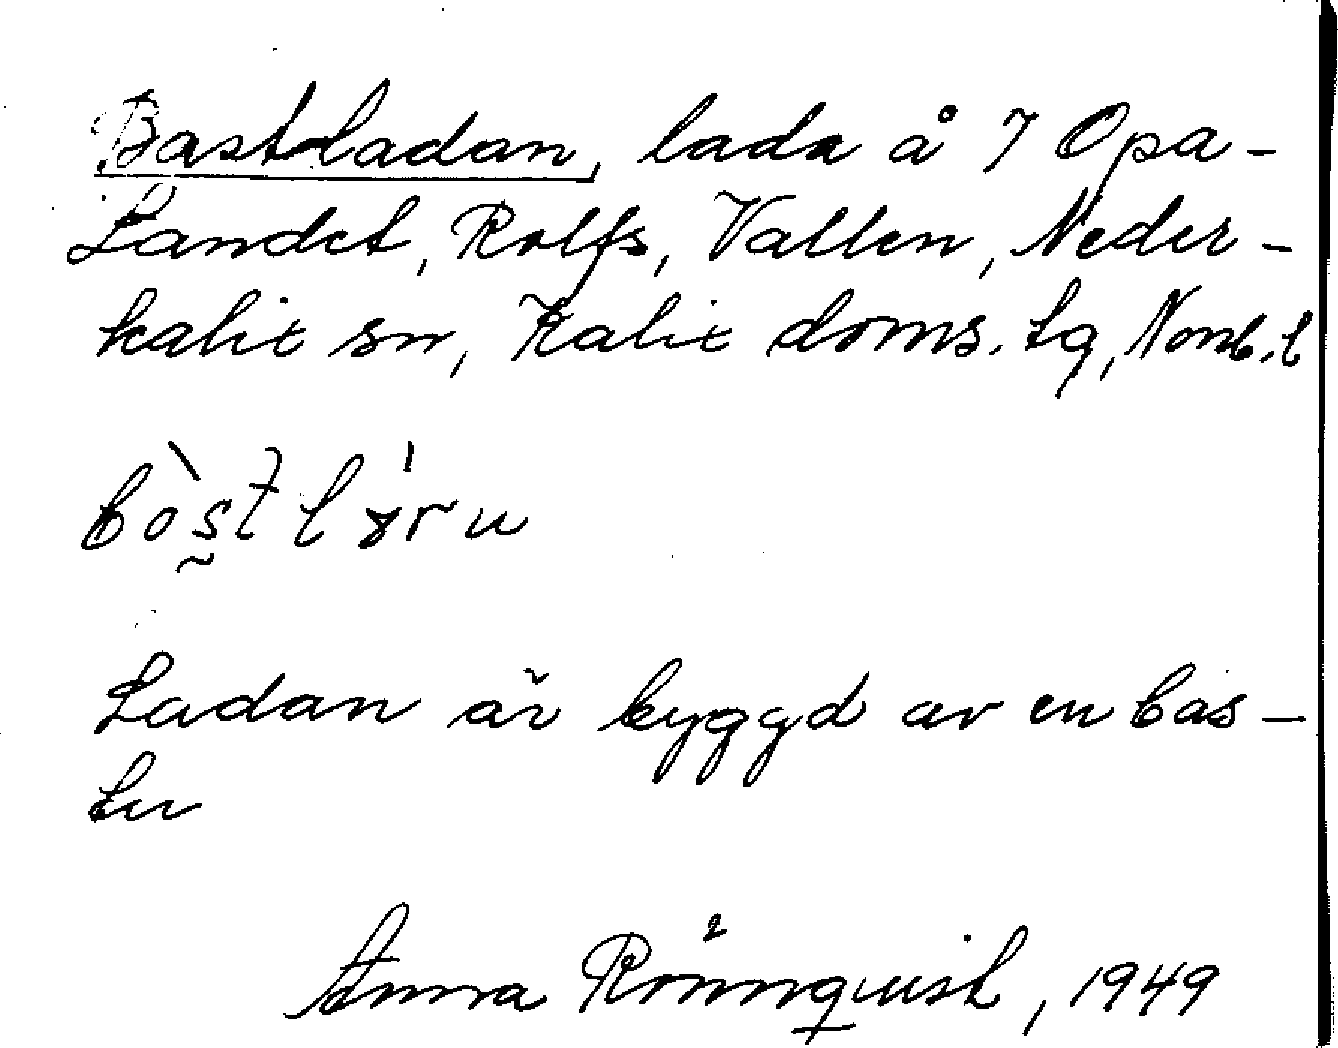 Bastuladan, lada å 7 Opa-
Landet, Rolfs, Vallen, Neder-
kalix sn, Kalix doms. tg, Norrb. l
Ladan är byggd av en bas-
tu
Anna Rönnquist, 1949